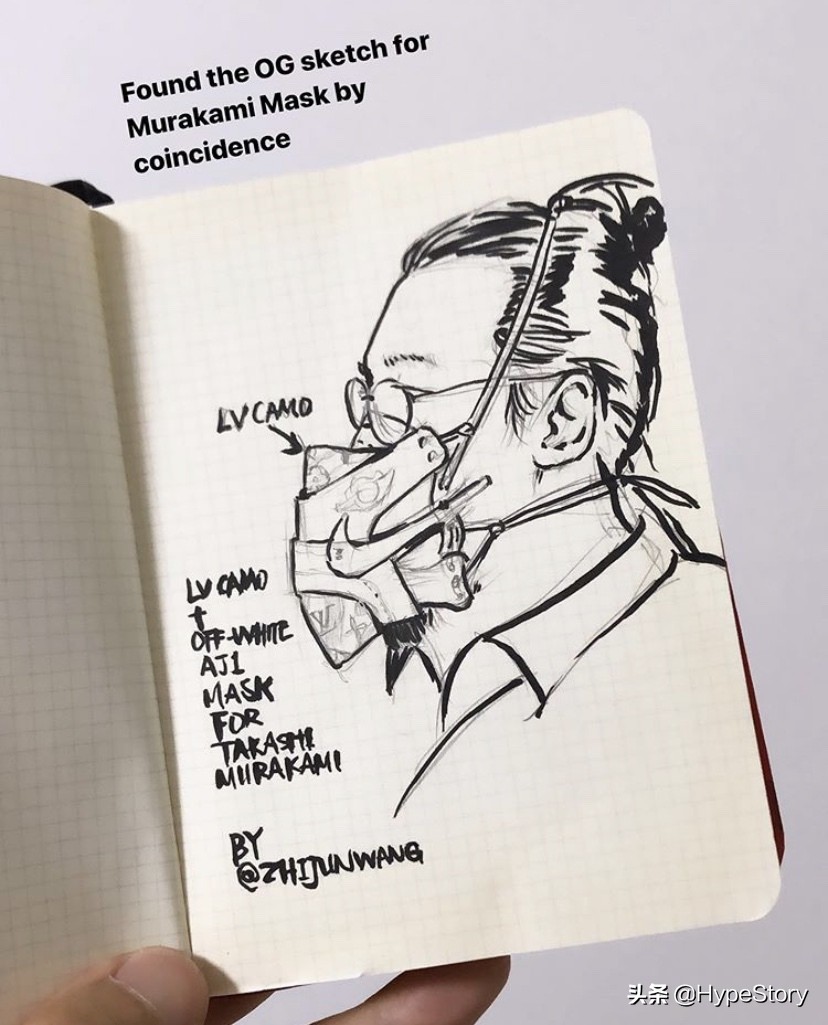 Found the OG sketch for
Murakami Mask by
coincidence
LV CAMO
LV CAMO
+
OFF-WHITE
AJ1
MASK
FOR
TAKASHI
MURAKAMI
BY
@ZHIJUNWANG
LV
头条 @HypeStory